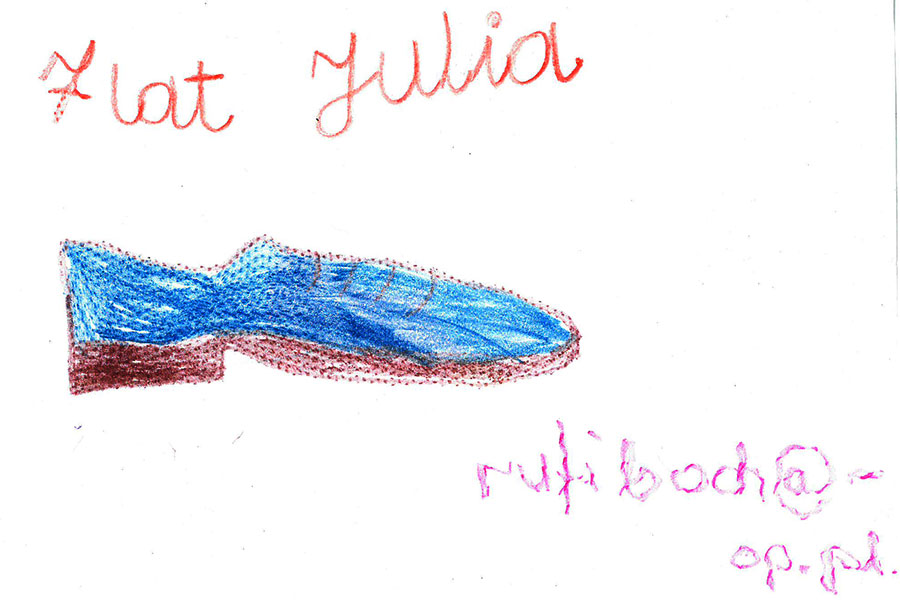 7 lat Julia
rufiboch@-
op.pl.